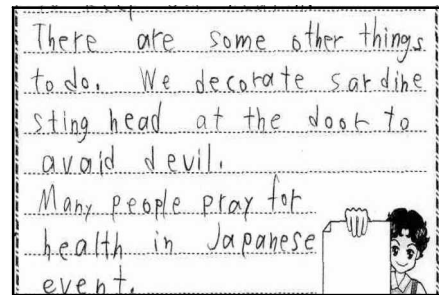 There are some other things
to do. We decorate sardine
sting head at the door to
avaid devil.
Many people pray for
health in Japanese
event.